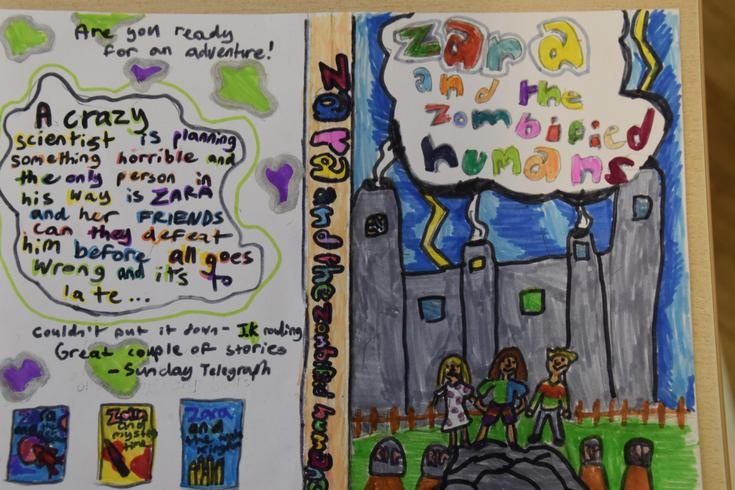 Are you ready
for an adventure!
A crazy
scientist is planning
something horrible and
the only person in
his way is ZARA
and her FRIENDS
can they defeat
him before all goes
wrong and it's to
late...
couldn't put it down - J.K rowling
Great couple of stories
- Sunday Telegraph
Zara
Zara
and
myster
time
Zara
and
zara and the zombified humans
zara
and the
zombified
humans